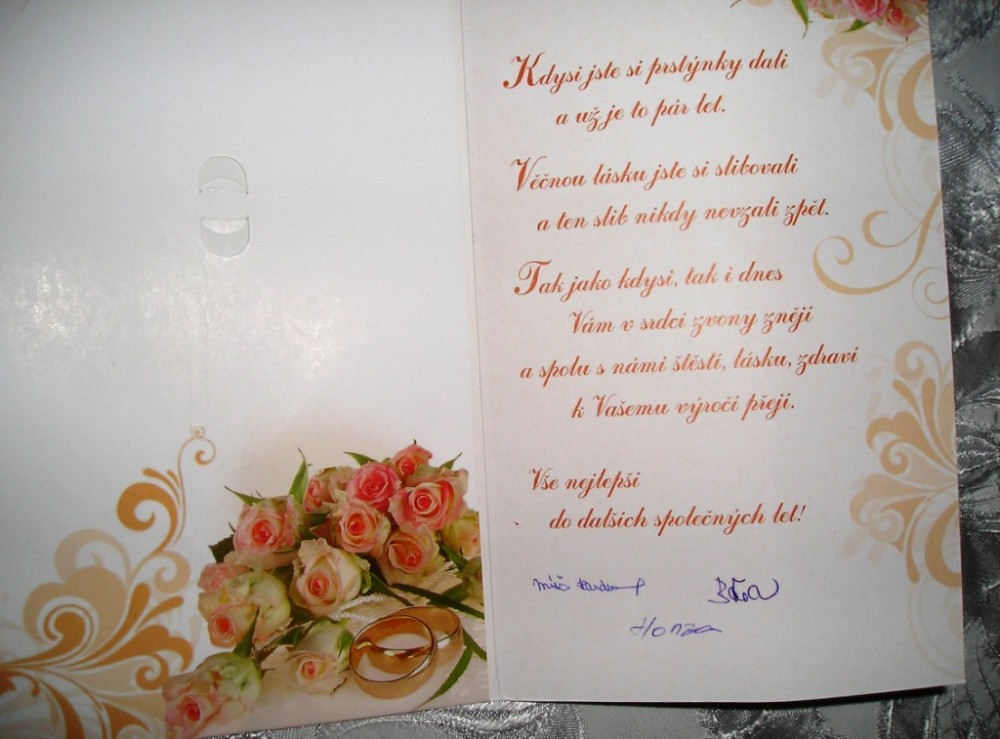 Kdysi jste si prstýnky dali
a už je to pár let.
Věčnou lásku jste si slibovali
a ten slib nikdy nevzali zpět.
Tak jako kdysi, tak i dnes
Vám v srdci zvony znějí
a spolu s námi štěstí, lásku, zdraví
k Vašemu výročí přejí.
Vše nejlepší
do dalších společných let!
Honza